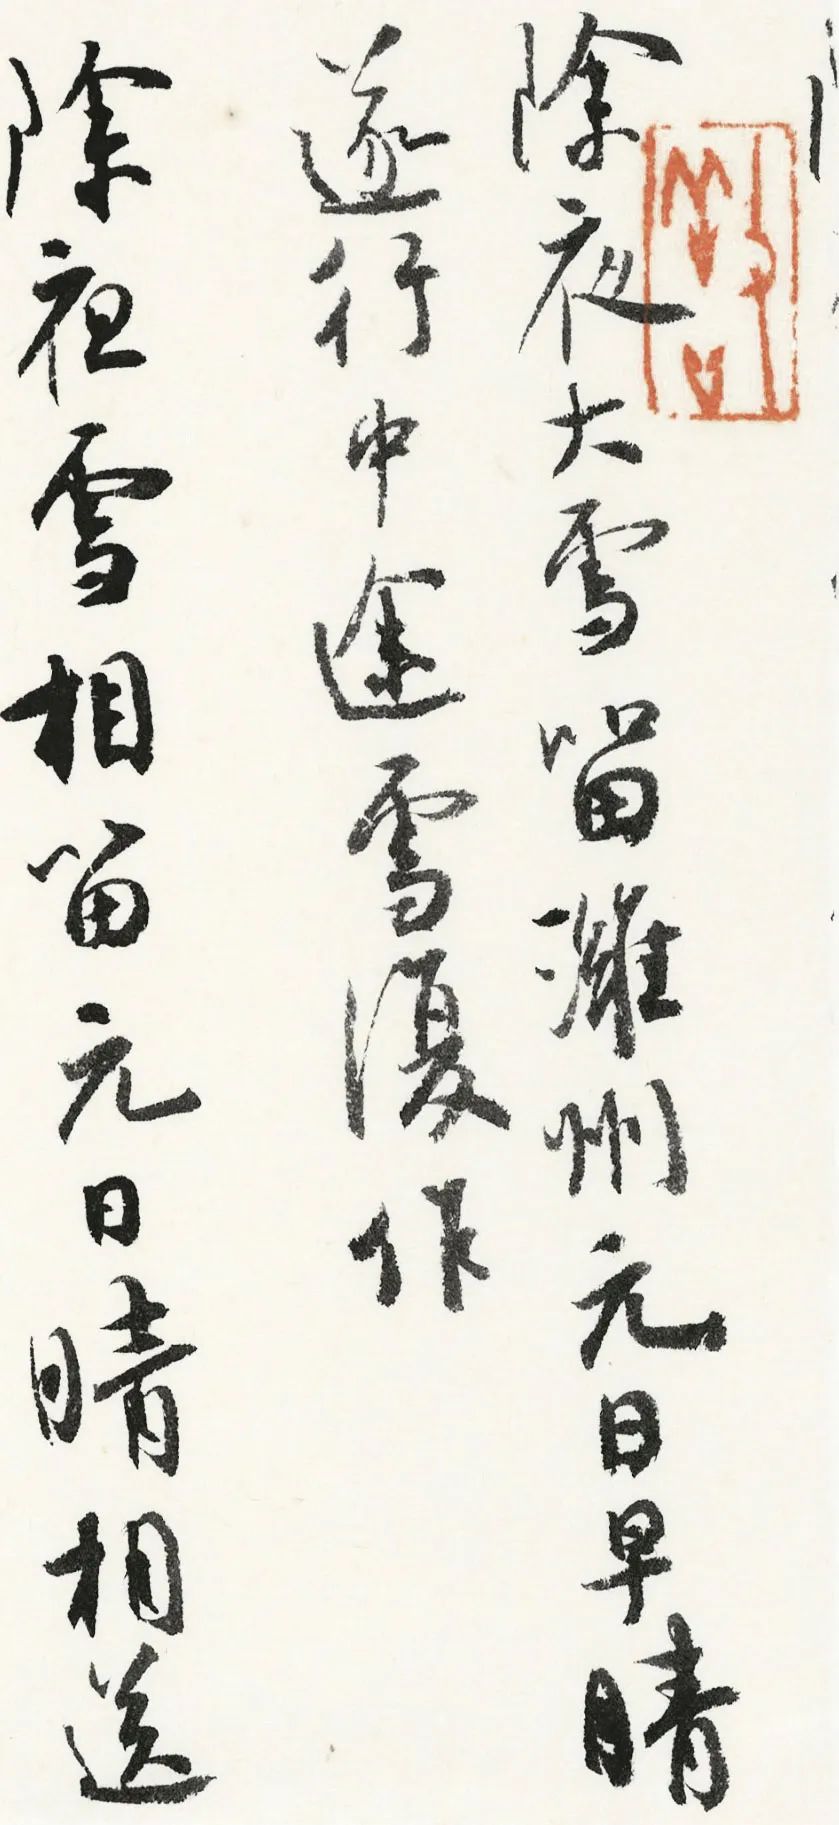 除夜大雪留潍州元日早晴
遂行中途雪復作
除夜雪相留元日晴相送